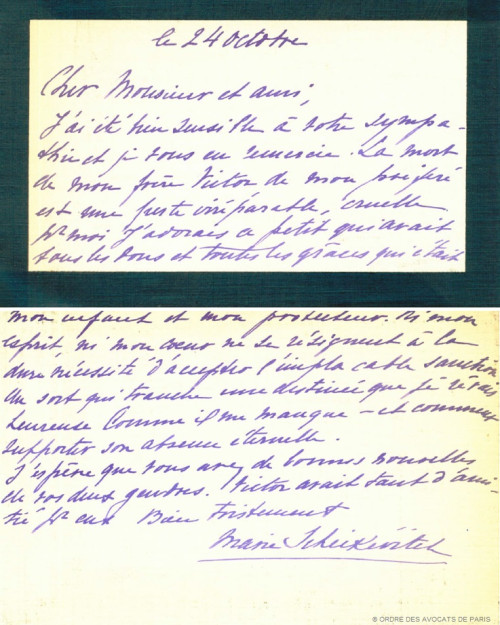 le 24 octobre
Cher Monsieur et ami,
J'ai été bien sensible à votre sympa-
thie et je vous en remercie. La mort
de mon frère Victor de mon préféré
est une perte irréparable, cruelle
pr moi J'adorais ce petit qui avait
tous les dons et toutes les grâces qui était
mon enfant et mon protecteur. Ni mon
esprit, ni mon cœur ne se résignent à la
dure nécessité d'accepter l'implacable sanction
du sort qui tranche une destinée que je rêvais
heureuse Comme il me manque – et comment
supporter son absence éternelle.
J'espère que vous avez de bonnes nouvelles
de vos deux gendres. Victor avait tant d'ami-
tié pr eux Bien tristement
Marie Scheikévitch
© ORDRE DES AVOCATS DE PARIS